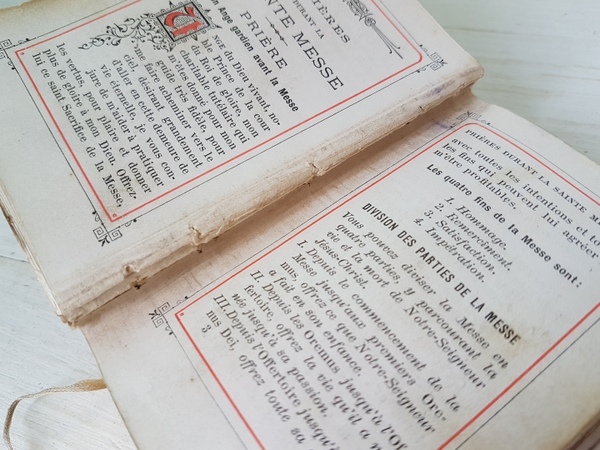 IÈRES
DURANT LA
NTE MESSE
PRIÈRE
Ange gardien avant la Messe
NGE du Dieu vivant, no
ble Prince de la cour
du Roi de gloire, mon
charitable tutélaire qui
m'êtes donné pour mon
guide très fidèle, pour
me faire acheminer vers le
ciel, désirant grandement
d'aller en cette demeure de
vie éternelle, je vous con-
jure de m'aider à pratiquer
les vertus, pour plaire et donner
plus de gloire à mon Dieu. Offrez-
lui ce saint Sacrifice de la Messe,
PRIÈRES DURANT LA SAINTE M
avec toutes les intentions et to
les fins qui peuvent lui agréer
m'être profitables.
Les quatre fins de la Messe sont:
1. Hommage.
2. Remerciement.
3. Satisfaction.
4. Impétration.
DIVISION DES PARTIES DE LA MESSE
Vous pouvez diviser la Messe en
quatre parties, y parcourant la
vie et la mort de Notre-Seigneur
Jésus-Christ.
I. Depuis le commencement de la
Messe jusqu'aux premiers Ore-
mus, offrez ce que Notre-Seigneur
a fait en son enfance.
II. Depuis les Oremus jusqu'à l'Of
fertoire, offrez la vie qu'il a m
née jusqu'à sa passion.
III. Depuis l'Offertoire jusqu'à
nus Dei, offrez toute sa
3